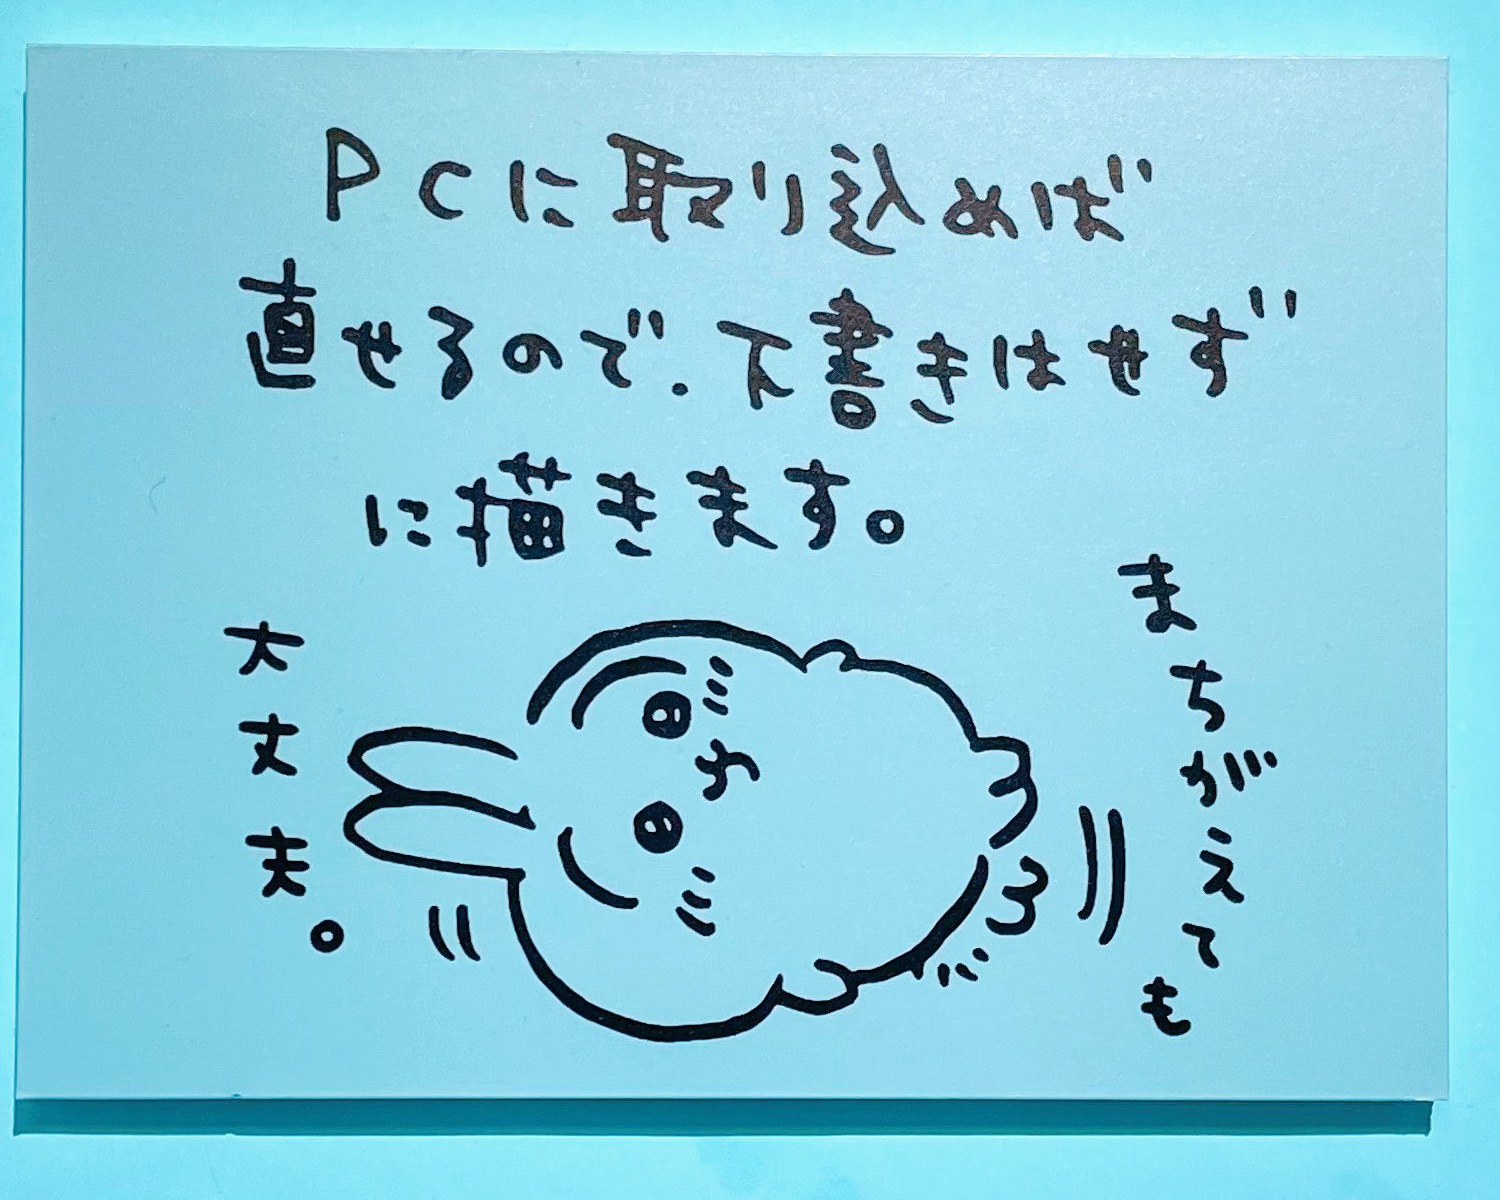 PCに取り込めば
直せるので、下書きはせず
に描きます。
まちがえても
大丈夫。